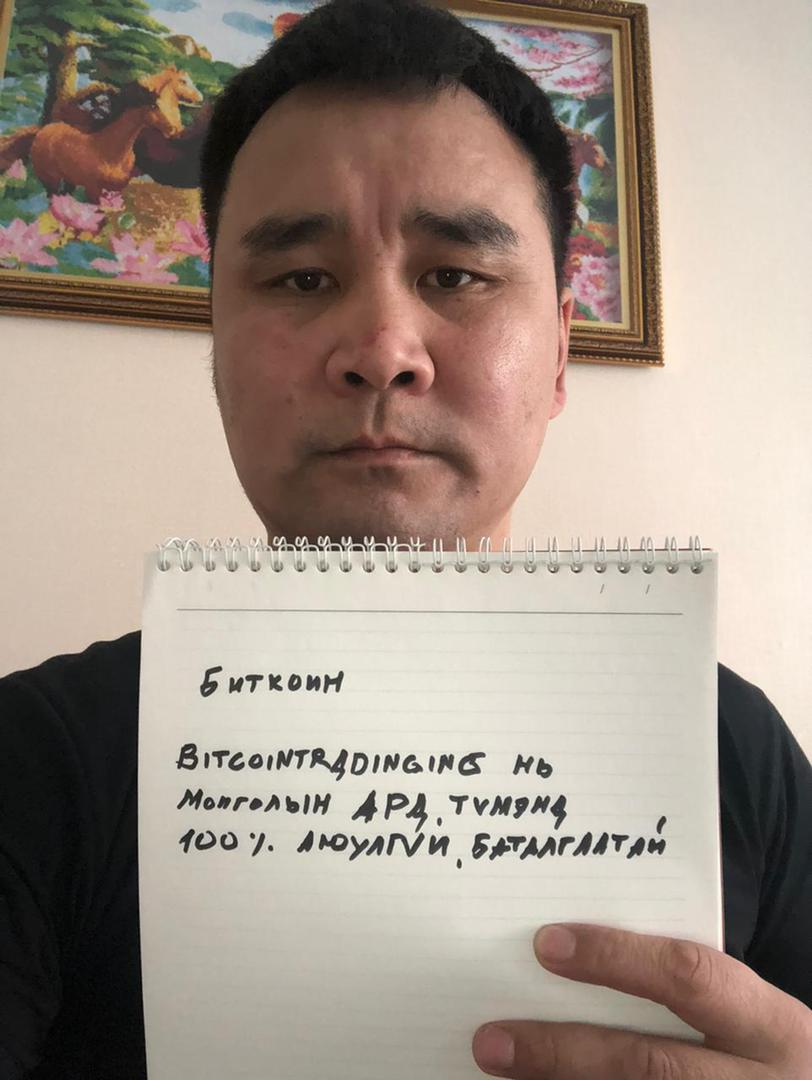 Биткоин
BITCOINTRADINGING нь
Монголын АРД, ТҮМЭНД
100% АЮУЛГҮИ, БАТАЛГЛАТАЙ